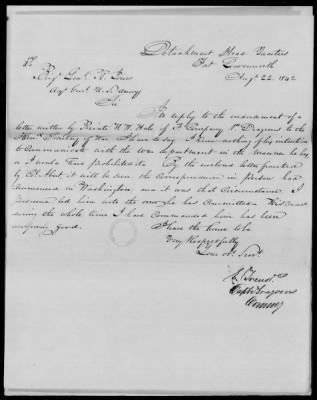 Detachment Head Quarters
Fort Leavenworth
Augt 22. 1842
To
Brig Genl R. Jones
Adjt Genl U.S. Army
Sir
In reply to the indorsement of a
letter written by Private W. W. Hale of F Company 1st Dragoons to the
Honl Secretary of War I have to say I knew nothing of his intention
to communicate with the war department in the manner he has
or I would have prohibited it. By the enclosed letter
by it will be seen the Correspondence in person was
Commenced in Washington, and it was that Circumstance I
presume led him into the error he has Committed. His conduct
during the whole time I have Commanded him has been
uniformly good.
I have the honor to be
Very Respectfully
Your obt Servt
Capt Dragoons
Commdg